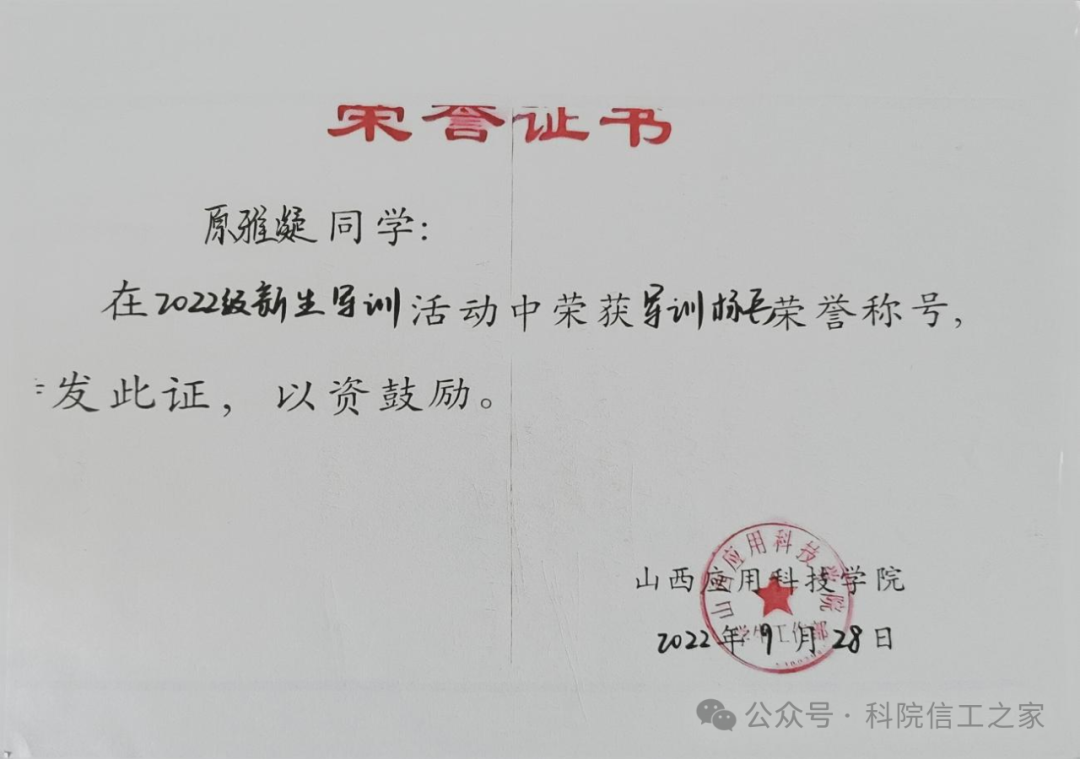 荣誉证书
原雅凝同学：
在2022级新生军训活动中荣获军训标兵荣誉称号，
发此证，以资鼓励。
山西应用科技学院
2022年9月28日
山西应用科技学院
学生工作部
公众号·科院信工之家